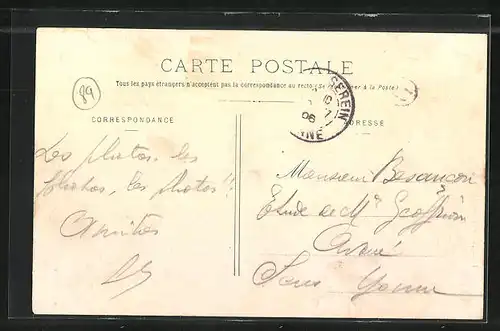 89
CARTE POSTALE
Tous les pays étrangers n'acceptent pas la correspondance au recto (Se à la Poste)
CORRESPONDANCE
ADRESSE
SEREIN
10
7
06
NNE
Les photos, les
photos, les photos!!
Amitiés
Monsieur Besançon
Etude de Me Geoffrion
Avoué
Sens Yonne